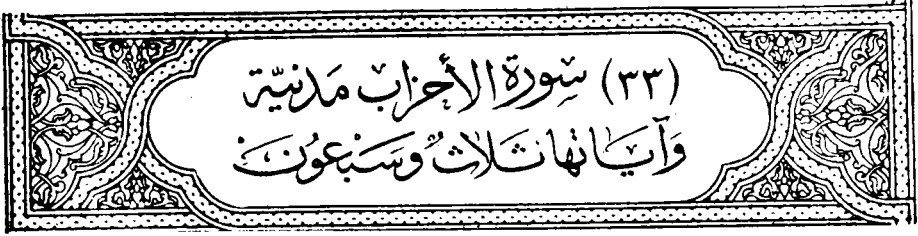 (٣٣) سورة الأحزاب مدنيّة
وآياتها ثلاث وسبعون